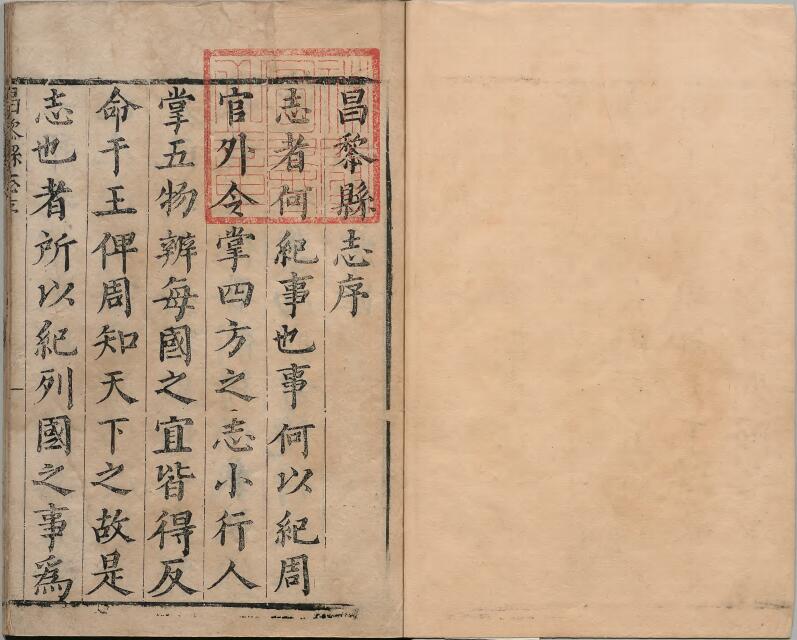 昌黎縣志序
志者何紀事也事何以紀周
官外令掌四方之志小行人
掌五物辨每國之宜皆得反
命于王俾周知天下之故是
志也者所以紀列國之事為
昌黎縣志